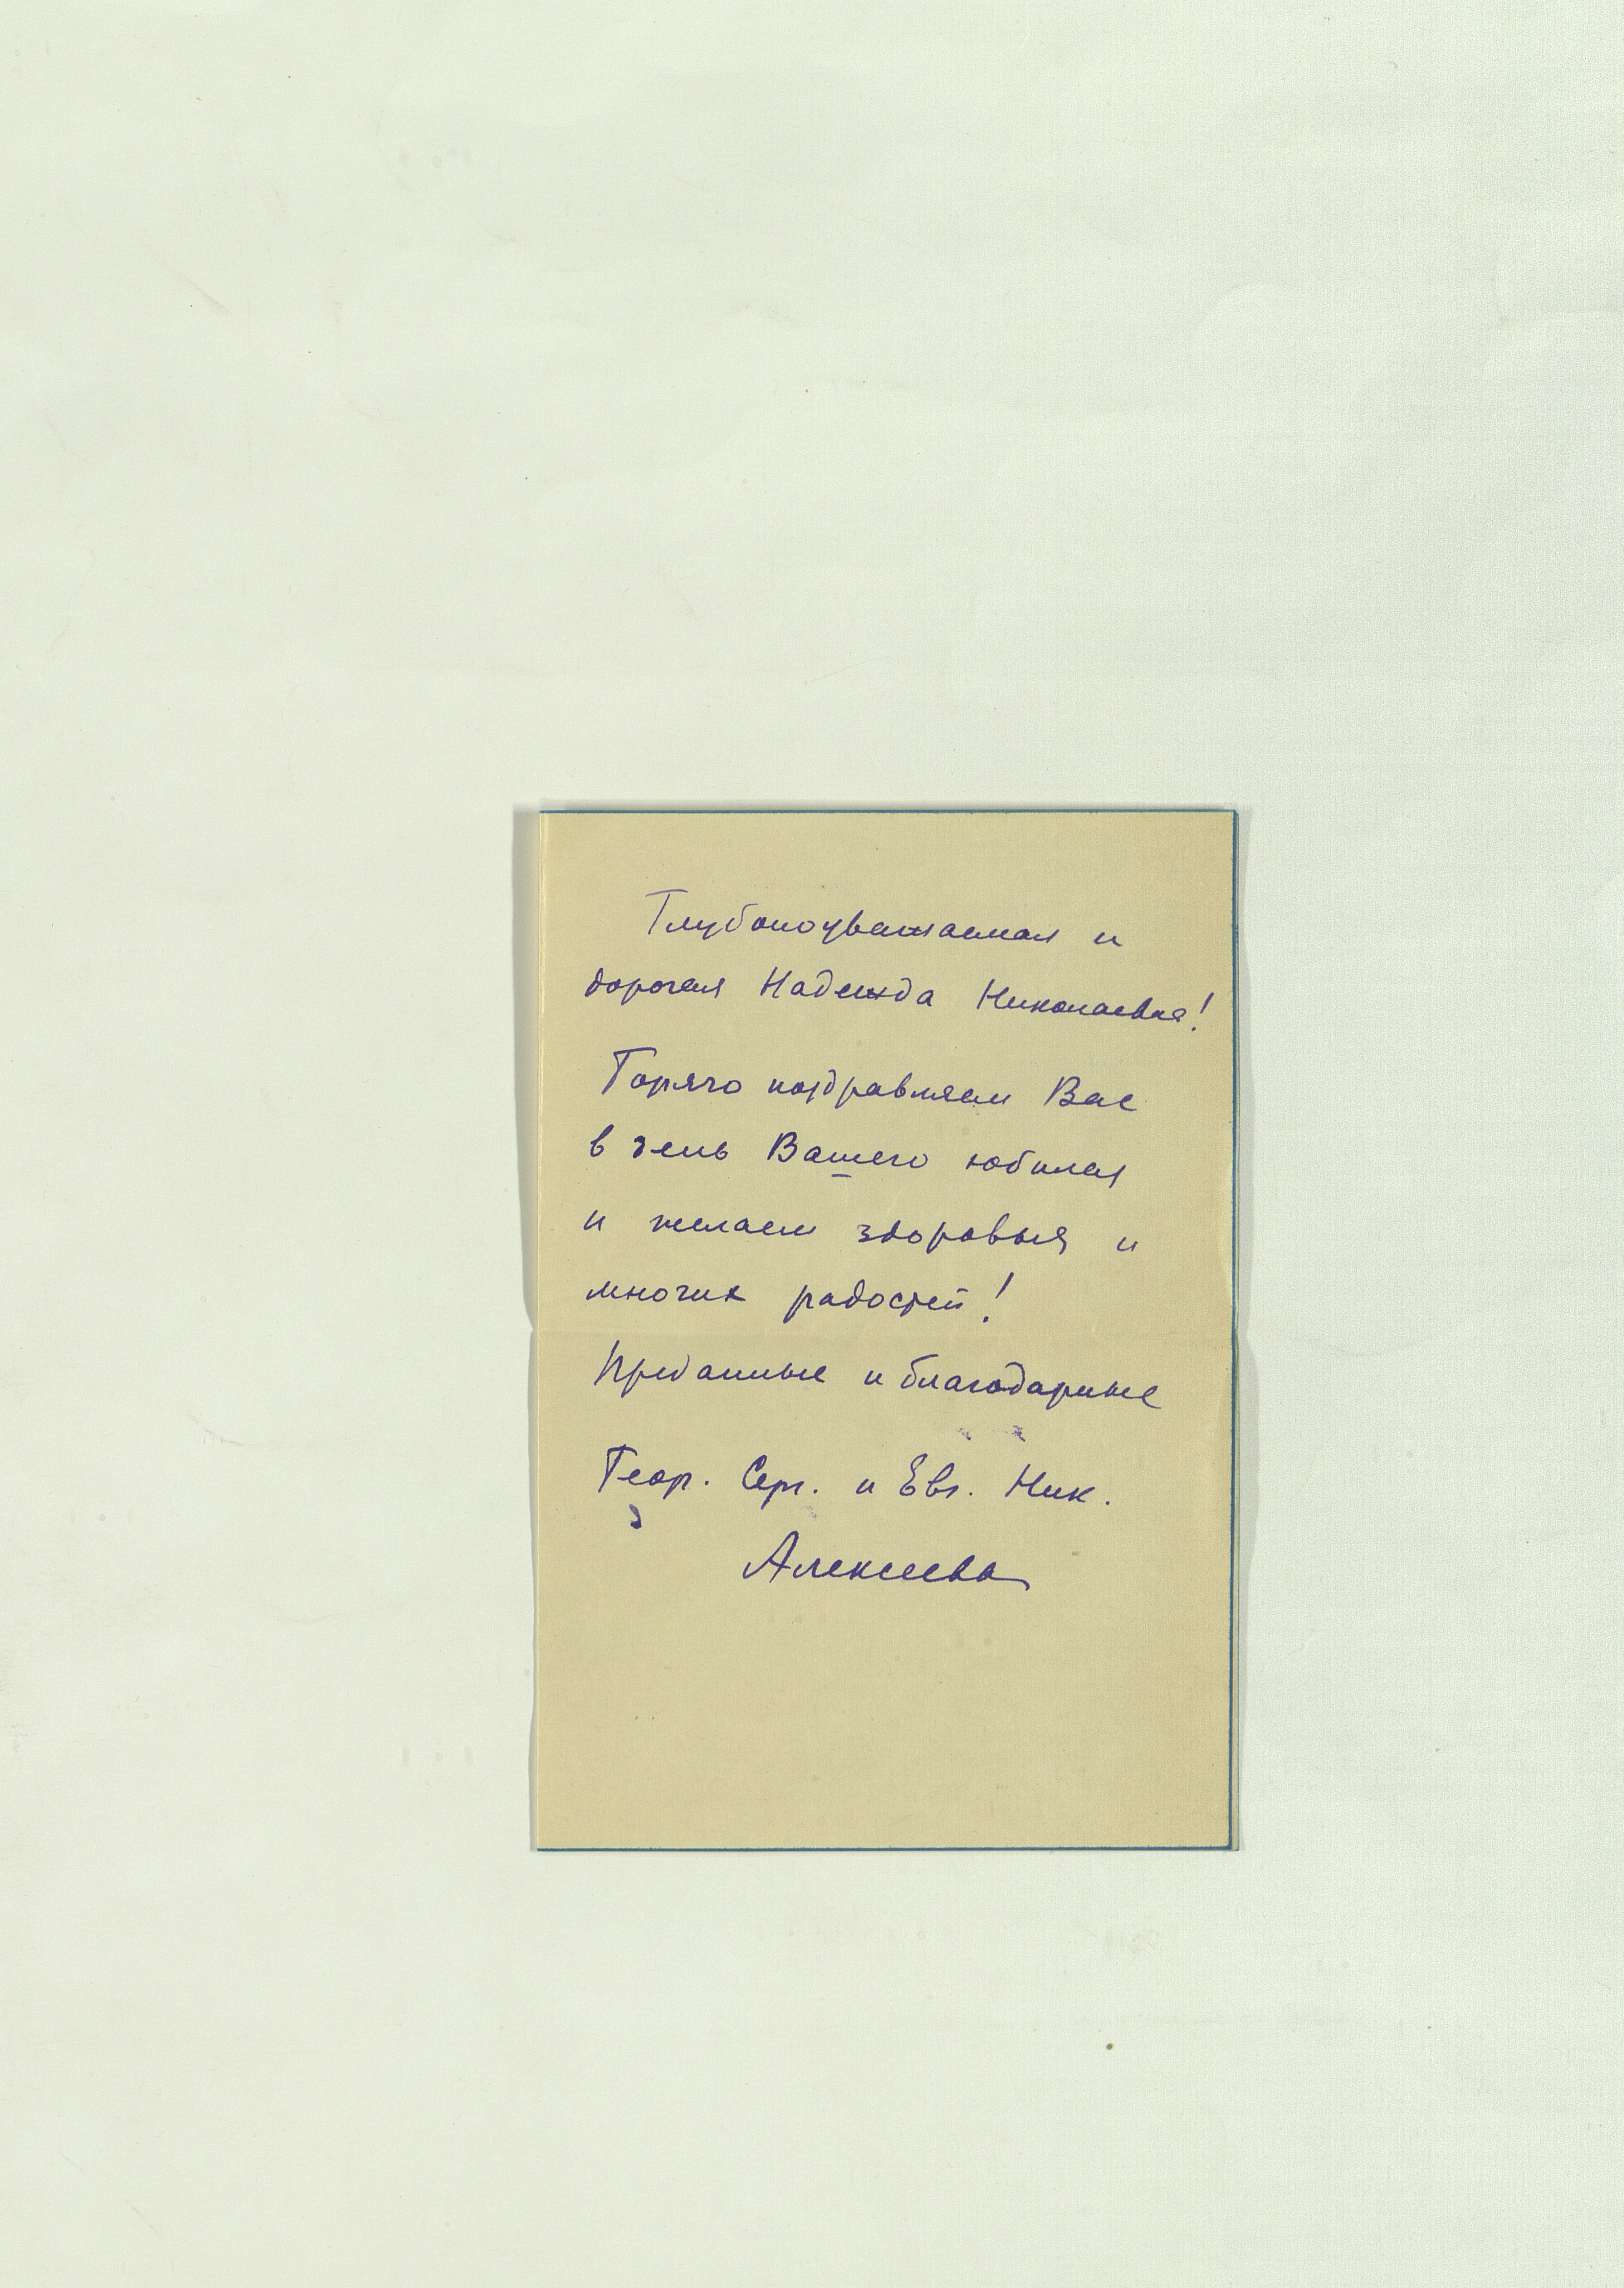 Глубокоуважаемая и
дорогая Надежда Николаевна!
Горячо поздравляем Вас
в день Вашего юбилея
и желаем здоровья и
многих радостей!
Преданные и благодарные
Геор. Серг. и Евг. Ник.
Алексеева